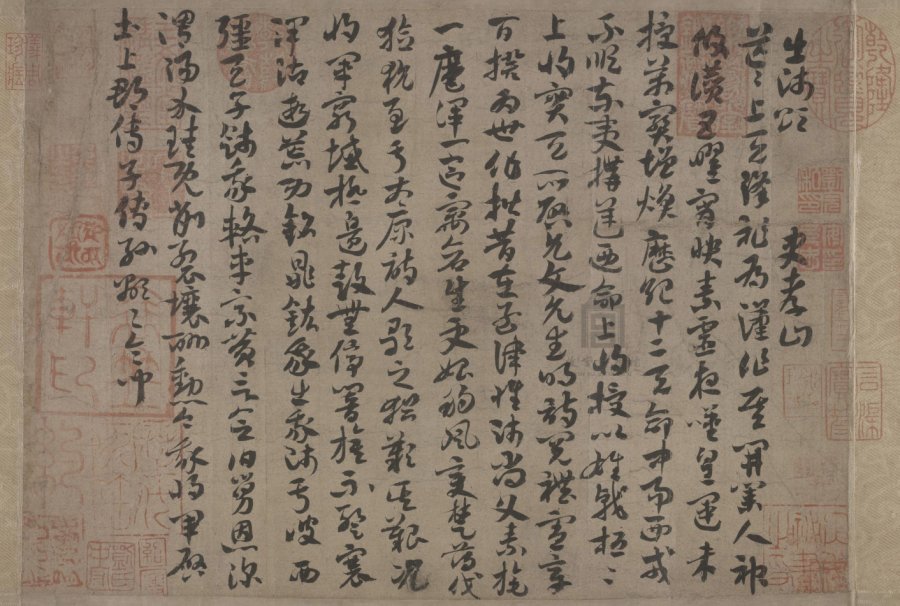 出師頌 史孝山
茫〻上天降祚為漢作基開業人神
攸讚五曜宵映素靈夜嘆皇運未
授萬寶增煥歷紀十二天命中易西戎
不順東夷構逆乃命上將授以雄戟桓〻
上將寔天所啟允文允武明詩閱禮憲章
百揆為世作楷昔在孟津惟師尚父素旄
一麾渾一區宇蒼生更始朔風變楚薄伐
獫狁至于太原詩人歌之猶歎其艱況
將軍窮域極邊鼓無停響旗不蹔褰
澤沾遐荒功銘鼎鉉我出我師于彼西
疆天子餞我輅車乘黃言念伯舅恩深
渭陽介珪既削列壤酬勳今我將軍啟
土上郡傳子傳孫顯〻令問